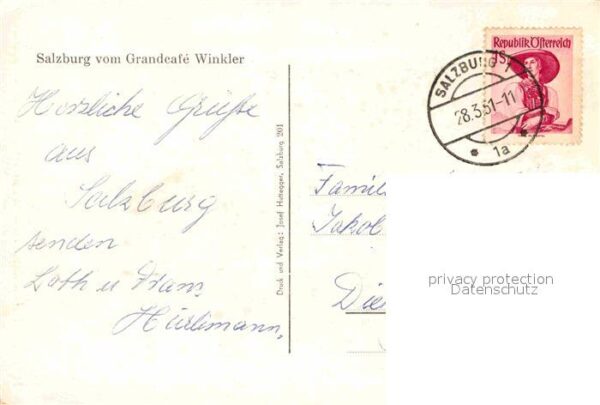 Salzburg vom Grandcafé Winkler
Herzliche Grüße
aus
Salzburg
senden
u
Hürlimann.
Druck und Verlag: Josef Huttegger, Salzburg 201
Republik Österreich
1S
SALZBURG 1
28.3.51-11
* 1a *
Famili
Jakob
Die
privacy protection
Datenschutz